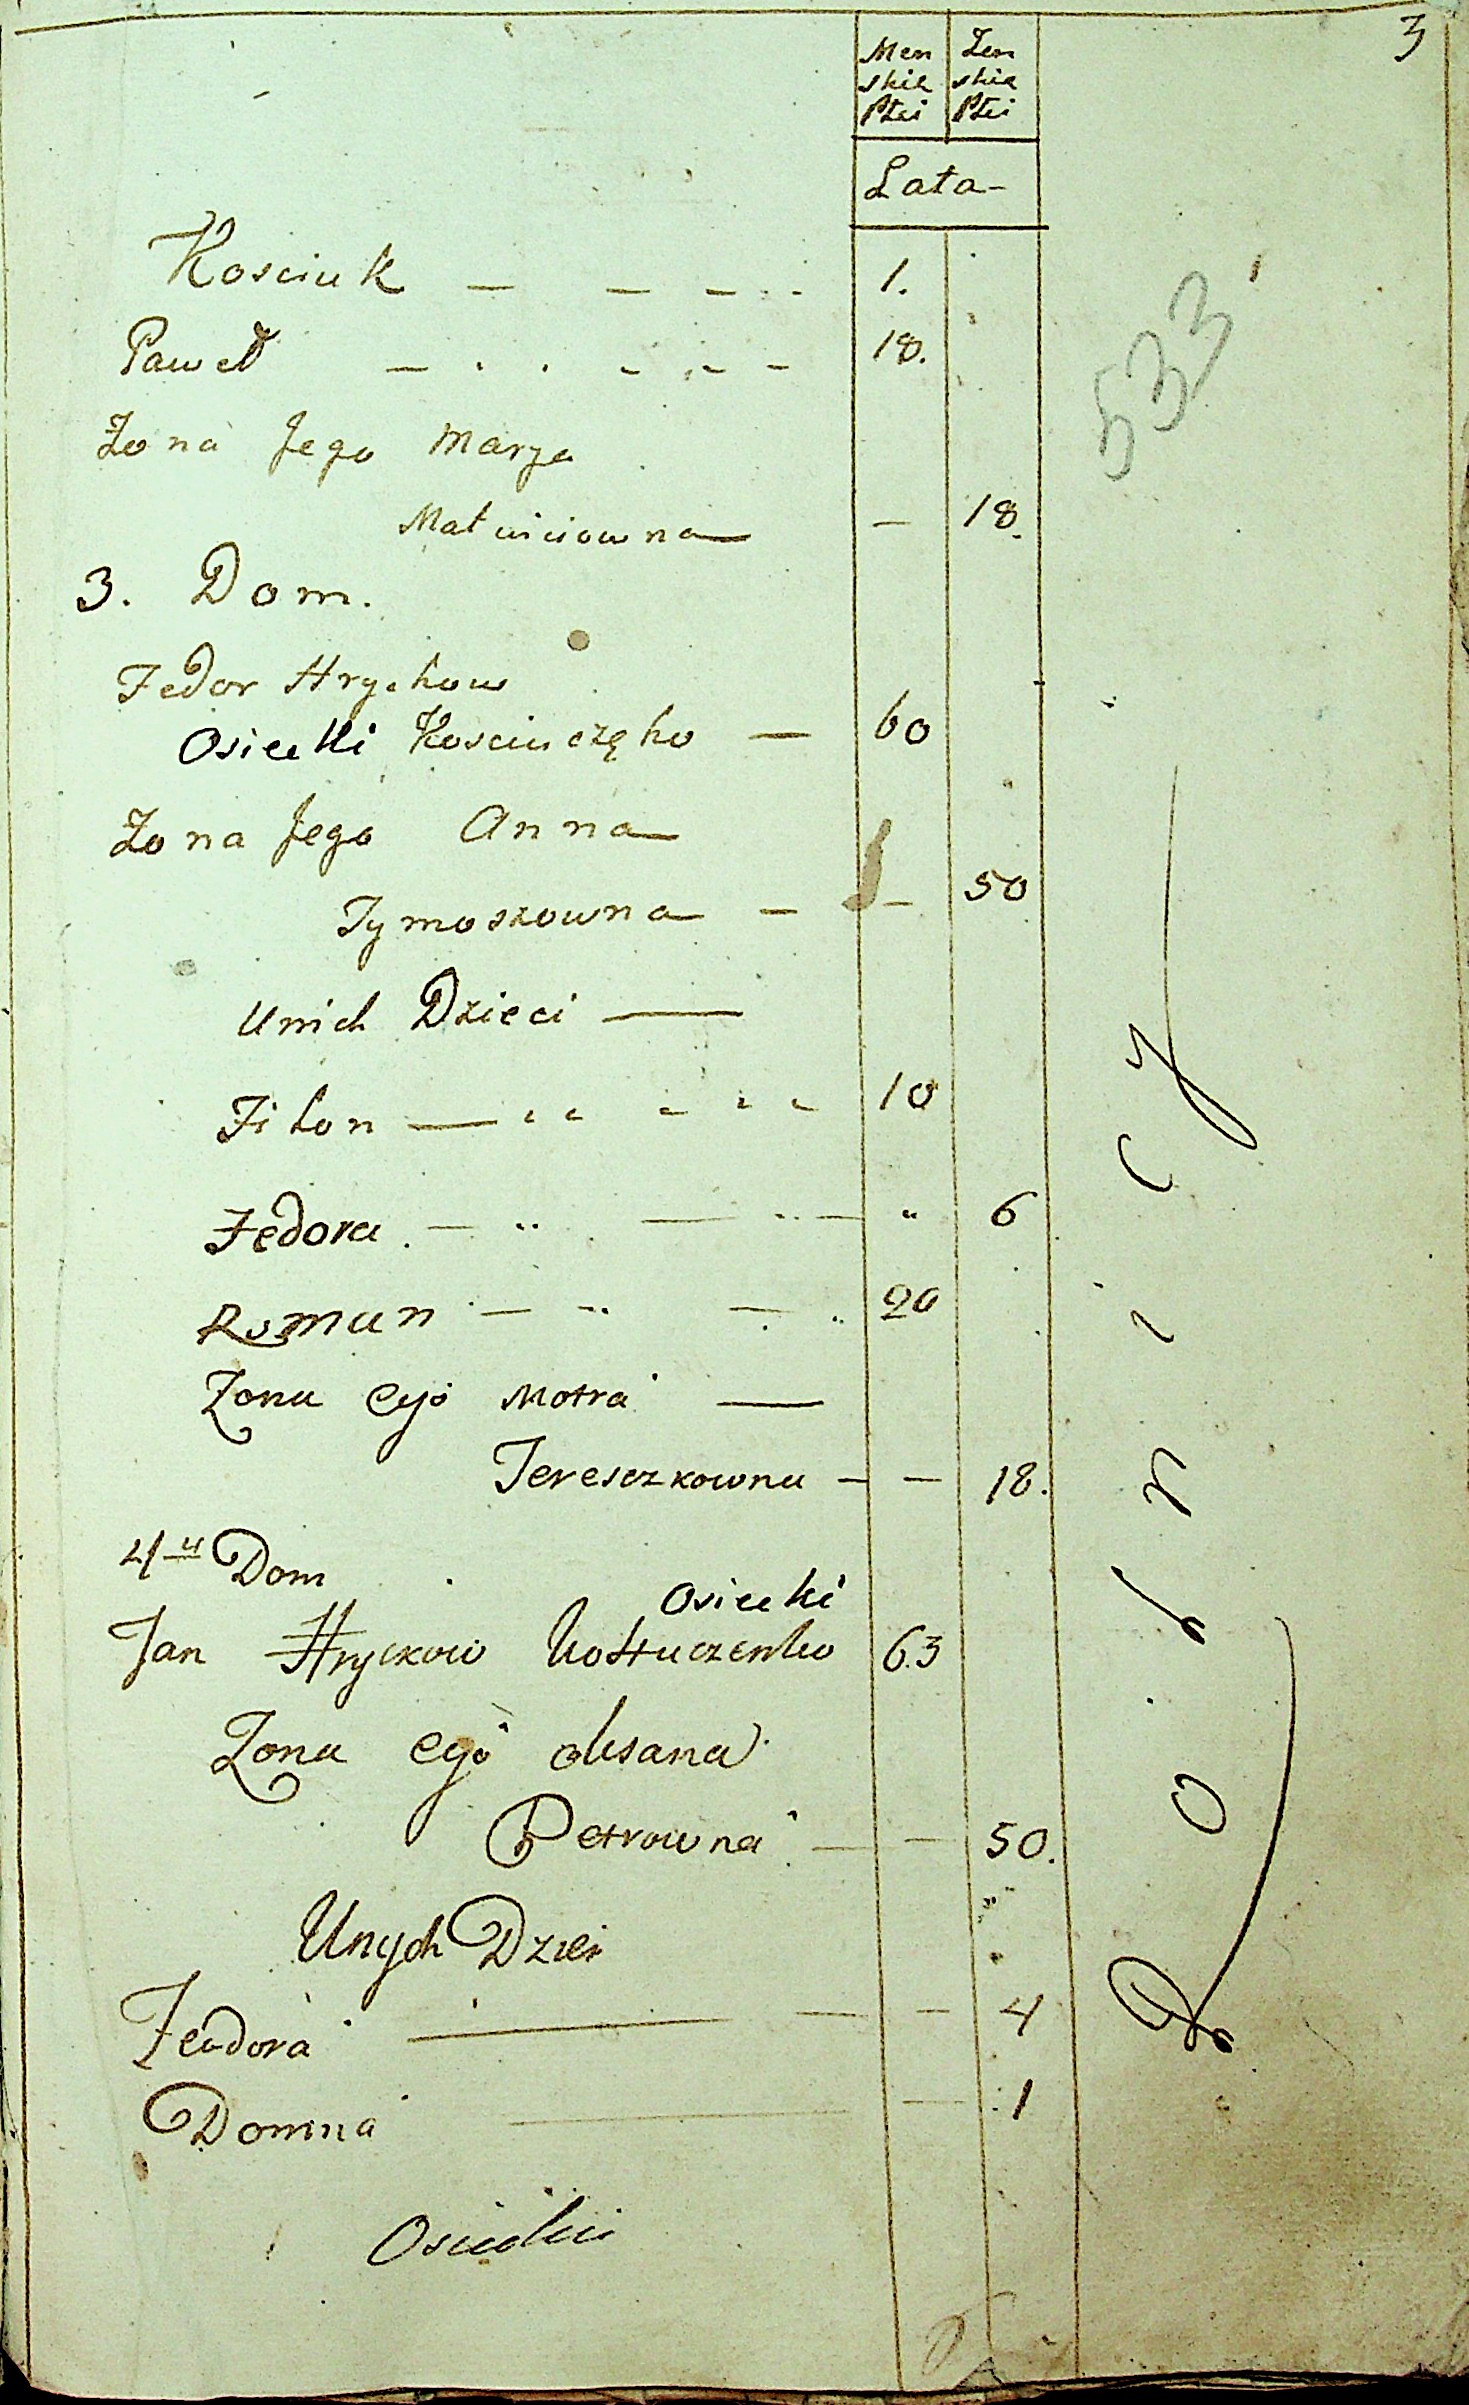 3
Men Żen
skie skie
Płci Płci
Lata -
Kosciuk - - - 1.
533
Paweł - - - 18.
Żona Jego Marya
Matwiiowna - 18.
3. Dom.
Fedor Hryckow
Osiecki Kosciuczęko - 60
Żona Jego Anna
Tymoszowna - - 50
Unich Dzieci -
Filon - 10
Fędora - " 6
Roman - 20
Żona Ego Motra -
Teresczkowna - - 18.
4ty Dom
Osiecki
Jan Hryckow Kostiuczenko 63
Żona ego oksana
Petrowna - - 50.
Unych Dzieci
Feodora - - 4
Domna - 1
Osiecki